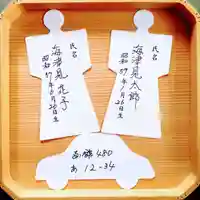 氏名
海津見太郎
昭和37年1月26日生
氏名
海津見花子
昭和37年6月28日生
函館480
あ12-34